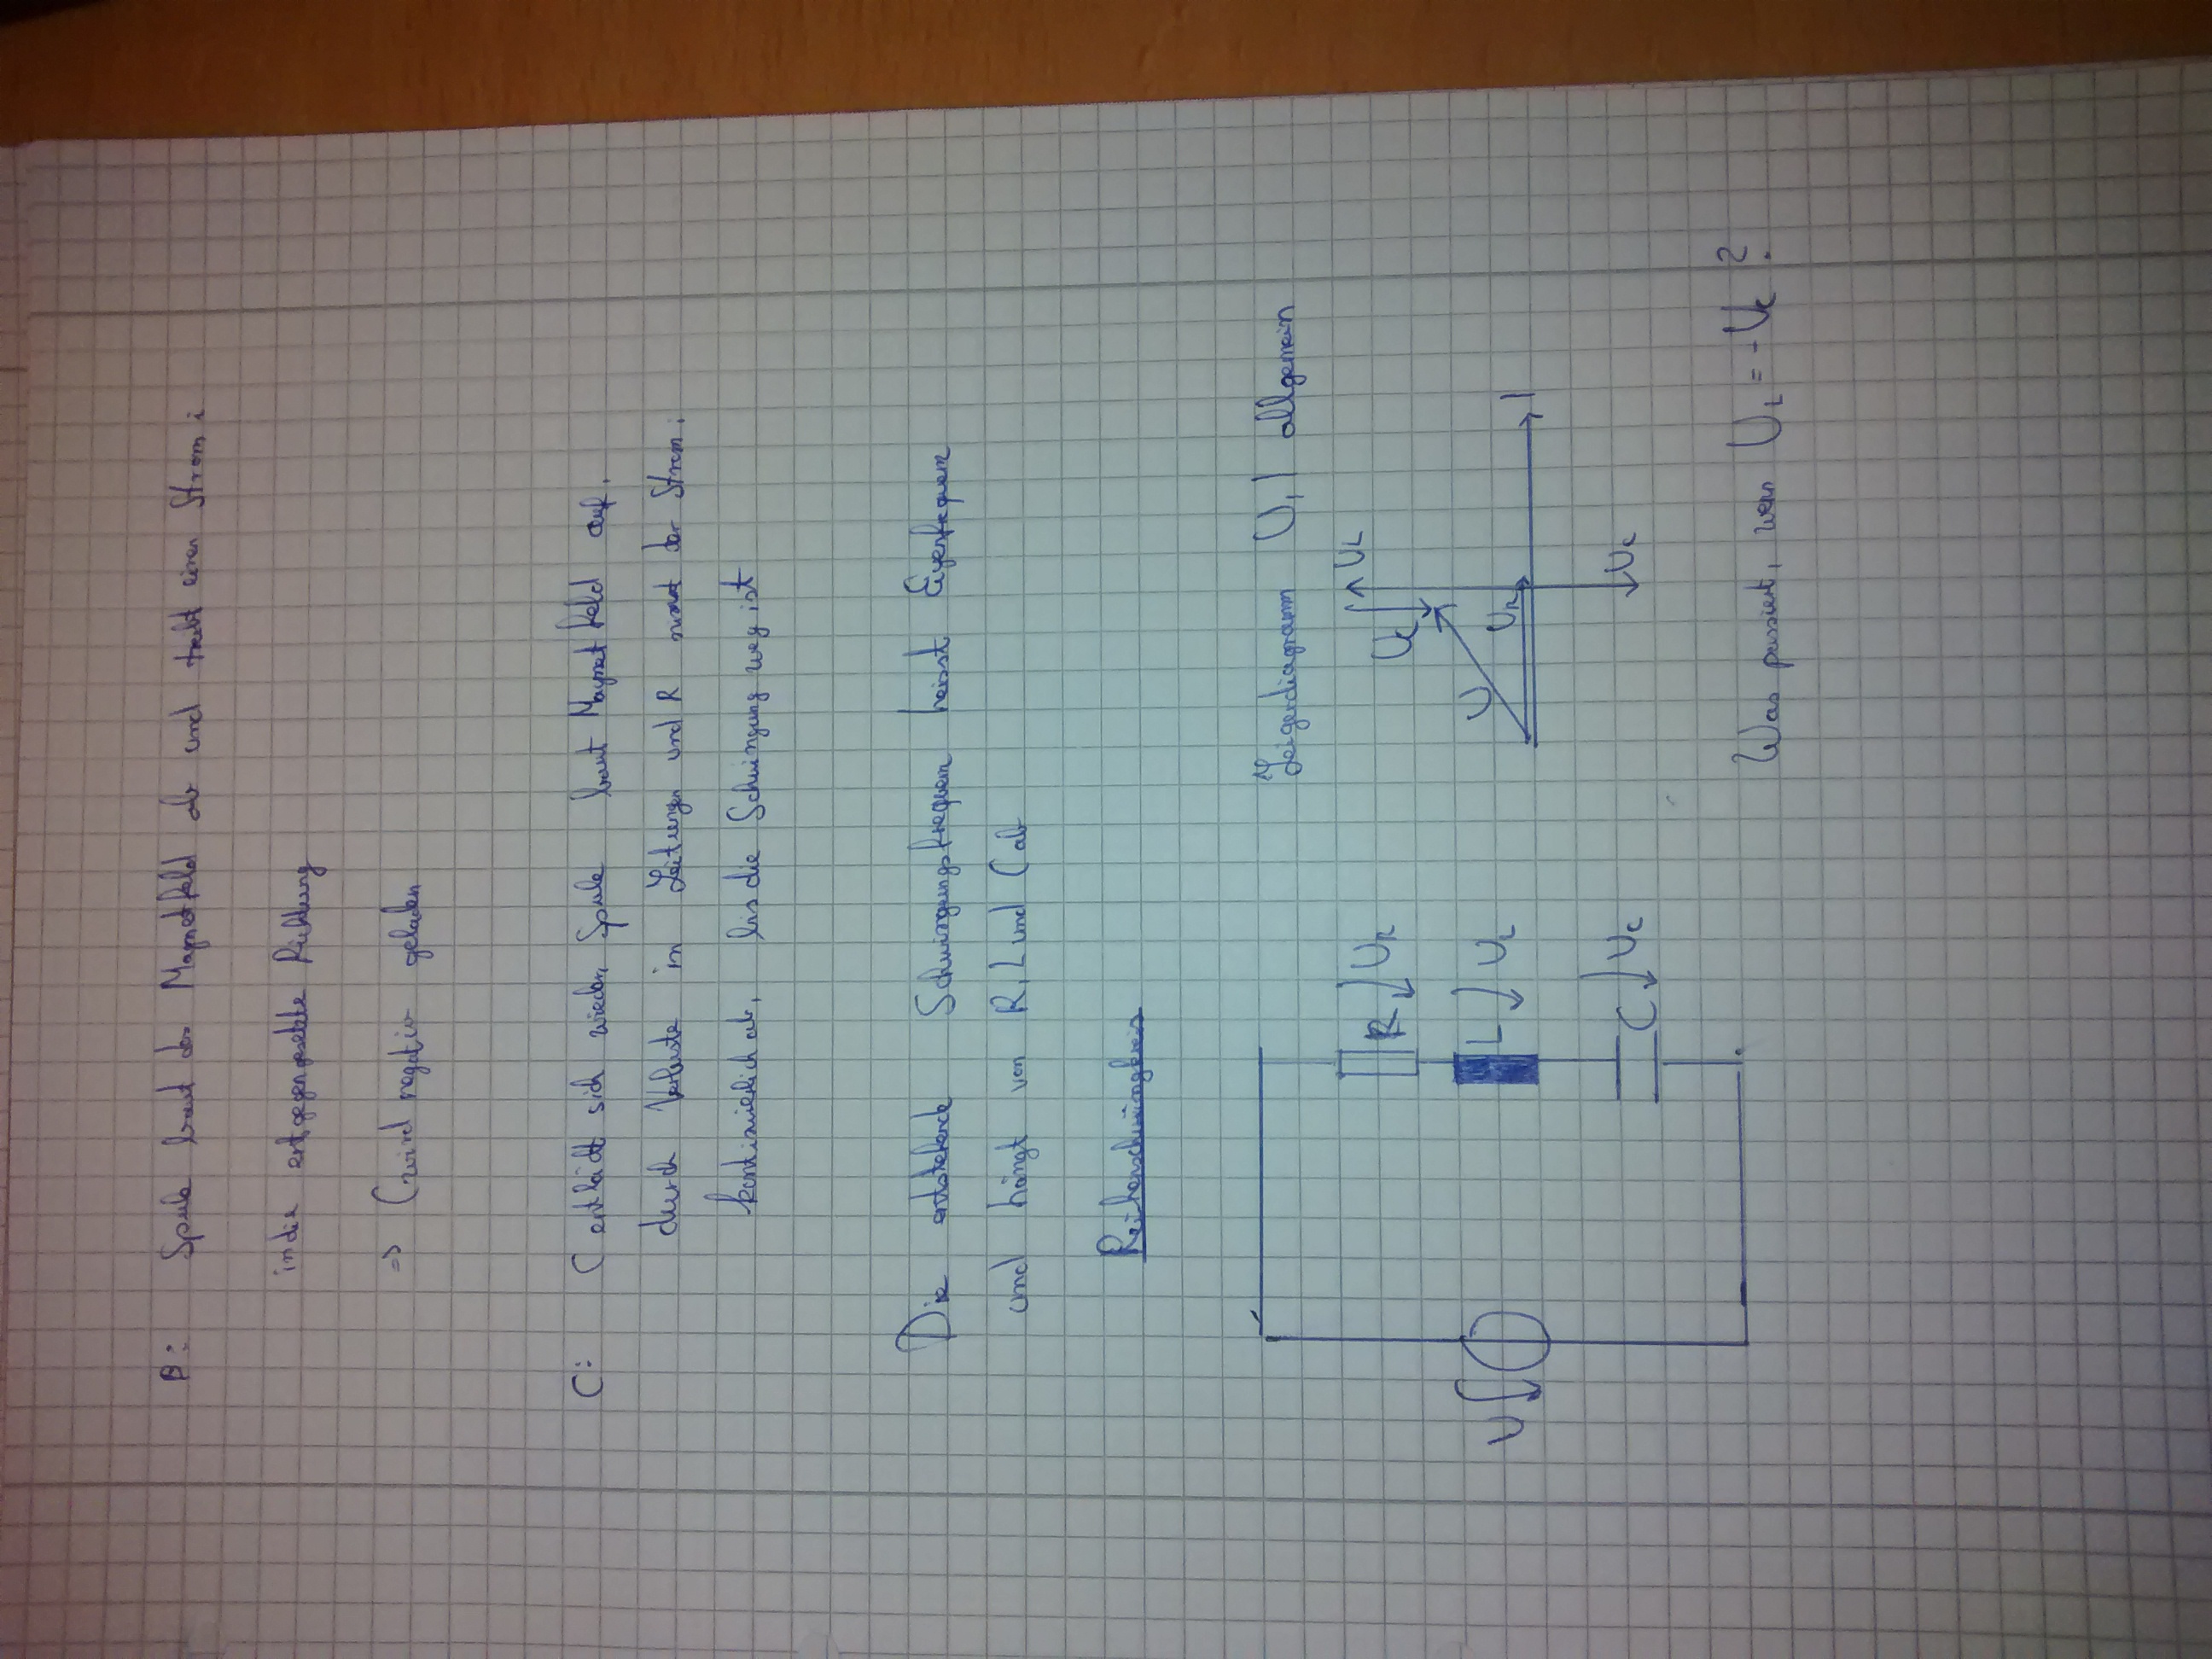 B: Spule baut das Magnetfeld ab und treibt einen Strom i
in die entgegengesetzte Richtung
=> C wird negativ geladen
C: C entlädt sich wieder, Spule baut Magnetfeld auf,
durch Verluste in Leitungen und R nimmt der Strom i
kontinuierlich ab, bis die Schwingung weg ist
Die entstehende Schwingungsfrequenz heisst Eigenfrequenz
und hängt von R, L und C ab
Reihenschwingkreis
Zeigerdiagramm U, I allgemein
U
R UR
L UL
C UC
UL
UC
U
UR
I
UC
Was passiert, wenn UL = -UC?